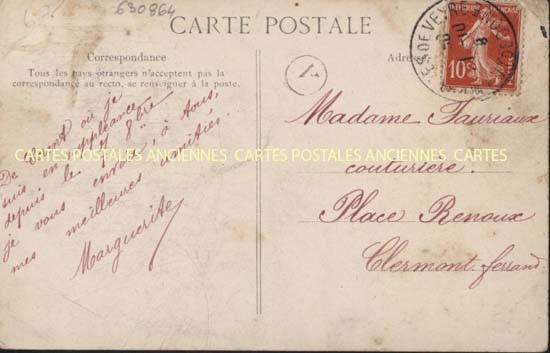 630864
CARTE POSTALE
Correspondance
Tous les pays étrangers n'acceptent pas la
correspondance au recto, se renseigner à la poste.
Adresse
V
10
De où je
suis en suppléance
depuis le 7 8bre
je vous envoie à tous,
mes meilleures amitiés.
Marguerite
Madame Fauriaux
couturière.
Place Renoux
Clermont-ferrand
CARTES POSTALES ANCIENNES CARTES POSTALES ANCIENNES CARTES POSTALES ANCIENNES